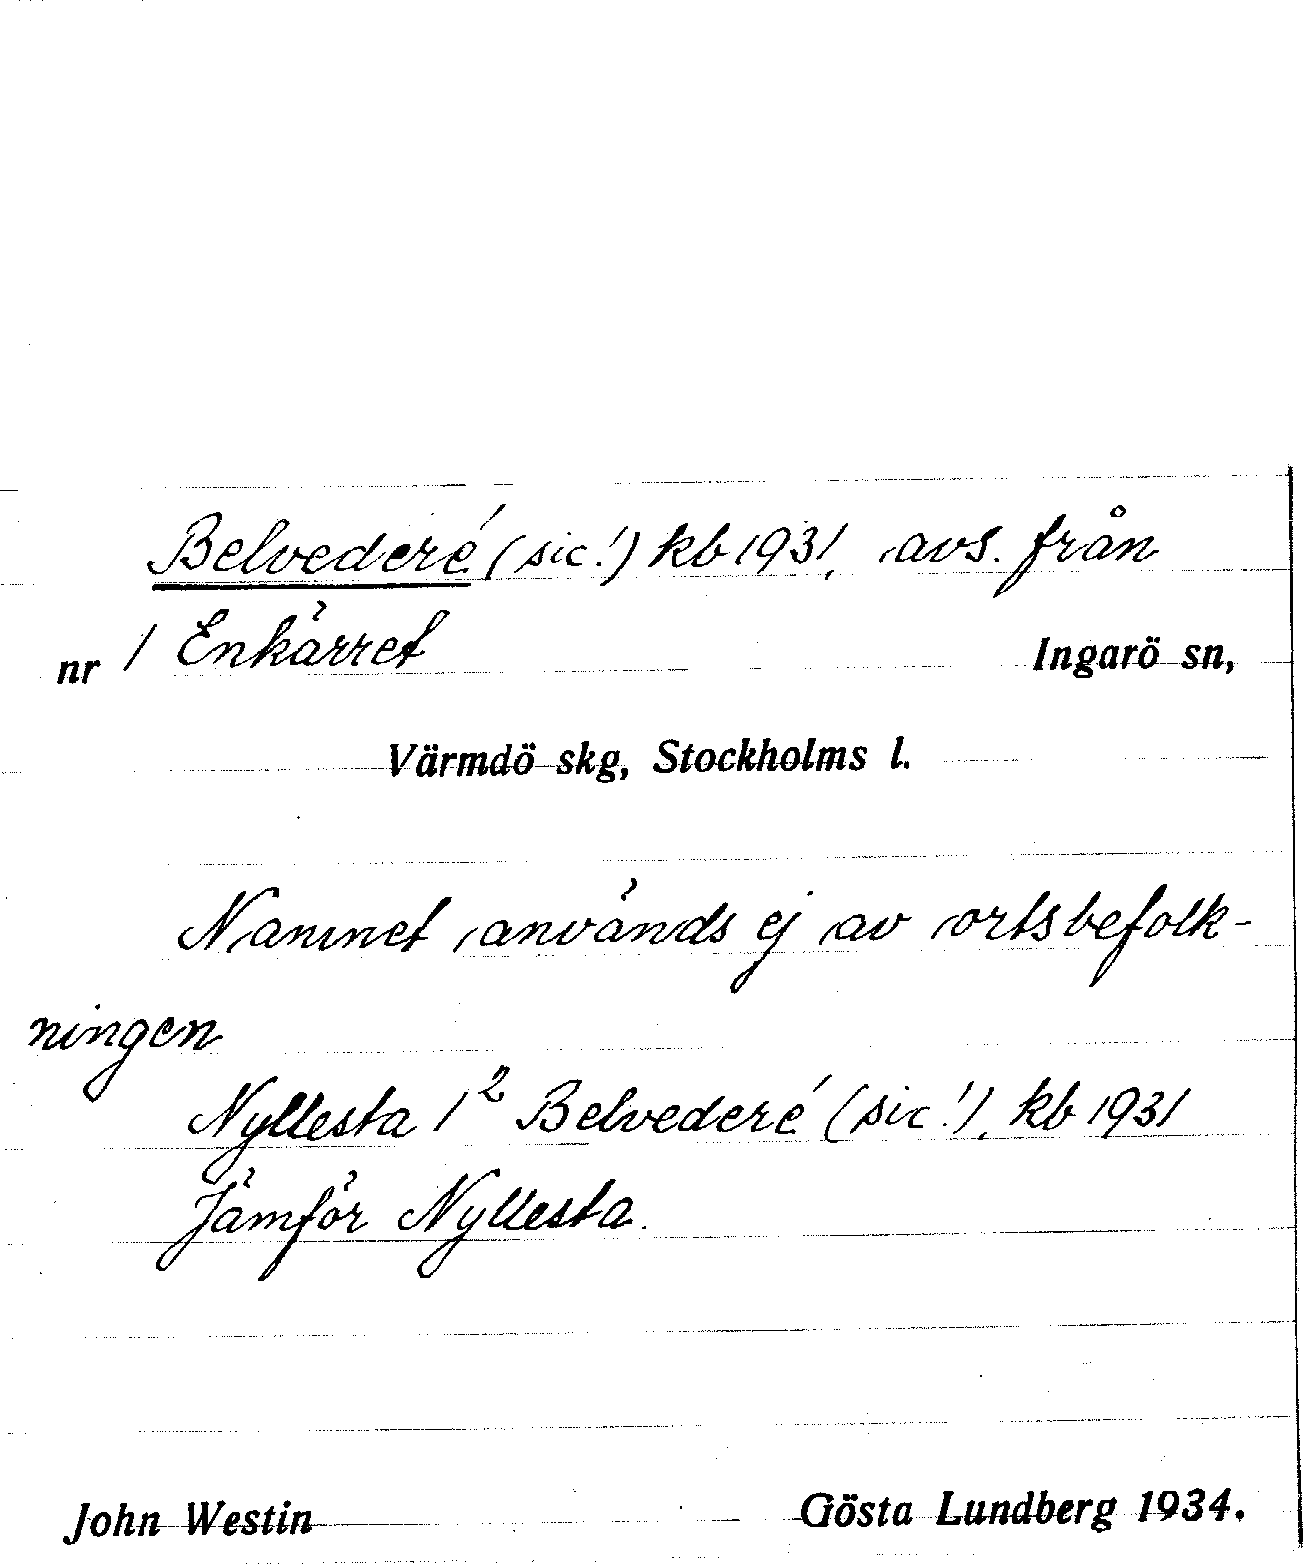 Belvederé (sic!) kb 1931, avs. från
nr 1 Enkärret Ingarö sn,
Värmdö skg, Stockholms l.
Namnet används ej av ortsbefolk-
ningen
Nyllesta 1² Belvederé (sic!), kb 1931
Jämför Nyllesta.
John Westin Gösta Lundberg 1934.